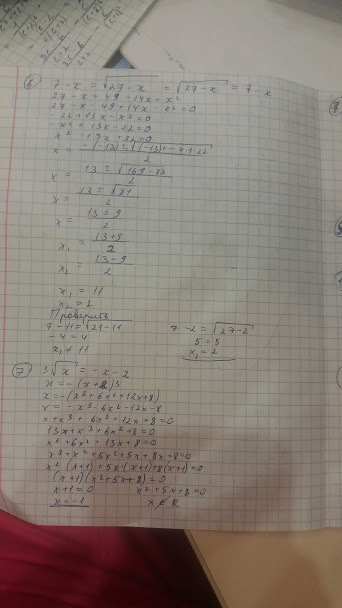 6) 7 - x = √27 - x = √27 - x = 7 - x
27 - x = 49 - 14x + x²
27 - x - 49 + 14x - x² = 0
-22 + 13x - x² = 0
-x² + 13x - 22 = 0
x² - 13x + 22 = 0
x = -(-13) ± √(-13)² - 4·1·22 / 2
x = 13 ± √169 - 88 / 2
x = 13 ± √81 / 2
x = 13 ± 9 / 2
x₁ = 13 + 9 / 2
x₂ = 13 - 9 / 2
x₁ = 11
x₂ = 2
Проверить
7 - 11 = √27 - 11
-4 = 4
x₁ ≠ 11
7 - 2 = √27 - 2
5 = 5
x₂ = 2
7) ³√x = -x - 2
x = -(x + 2)³
x = -(x³ + 6x² + 12x + 8)
x = -x³ - 6x² - 12x - 8
x + x³ + 6x² + 12x + 8 = 0
13x + x³ + 6x² + 8 = 0
x³ + 6x² + 13x + 8 = 0
x³ + x² + 5x² + 5x + 8x + 8 = 0
x² (x+1) + 5x (x+1) + 8(x+1) = 0
(x+1)(x² + 5x + 8) = 0
x + 1 = 0 x² + 5x + 8 = 0
x = -1 x ∉ R